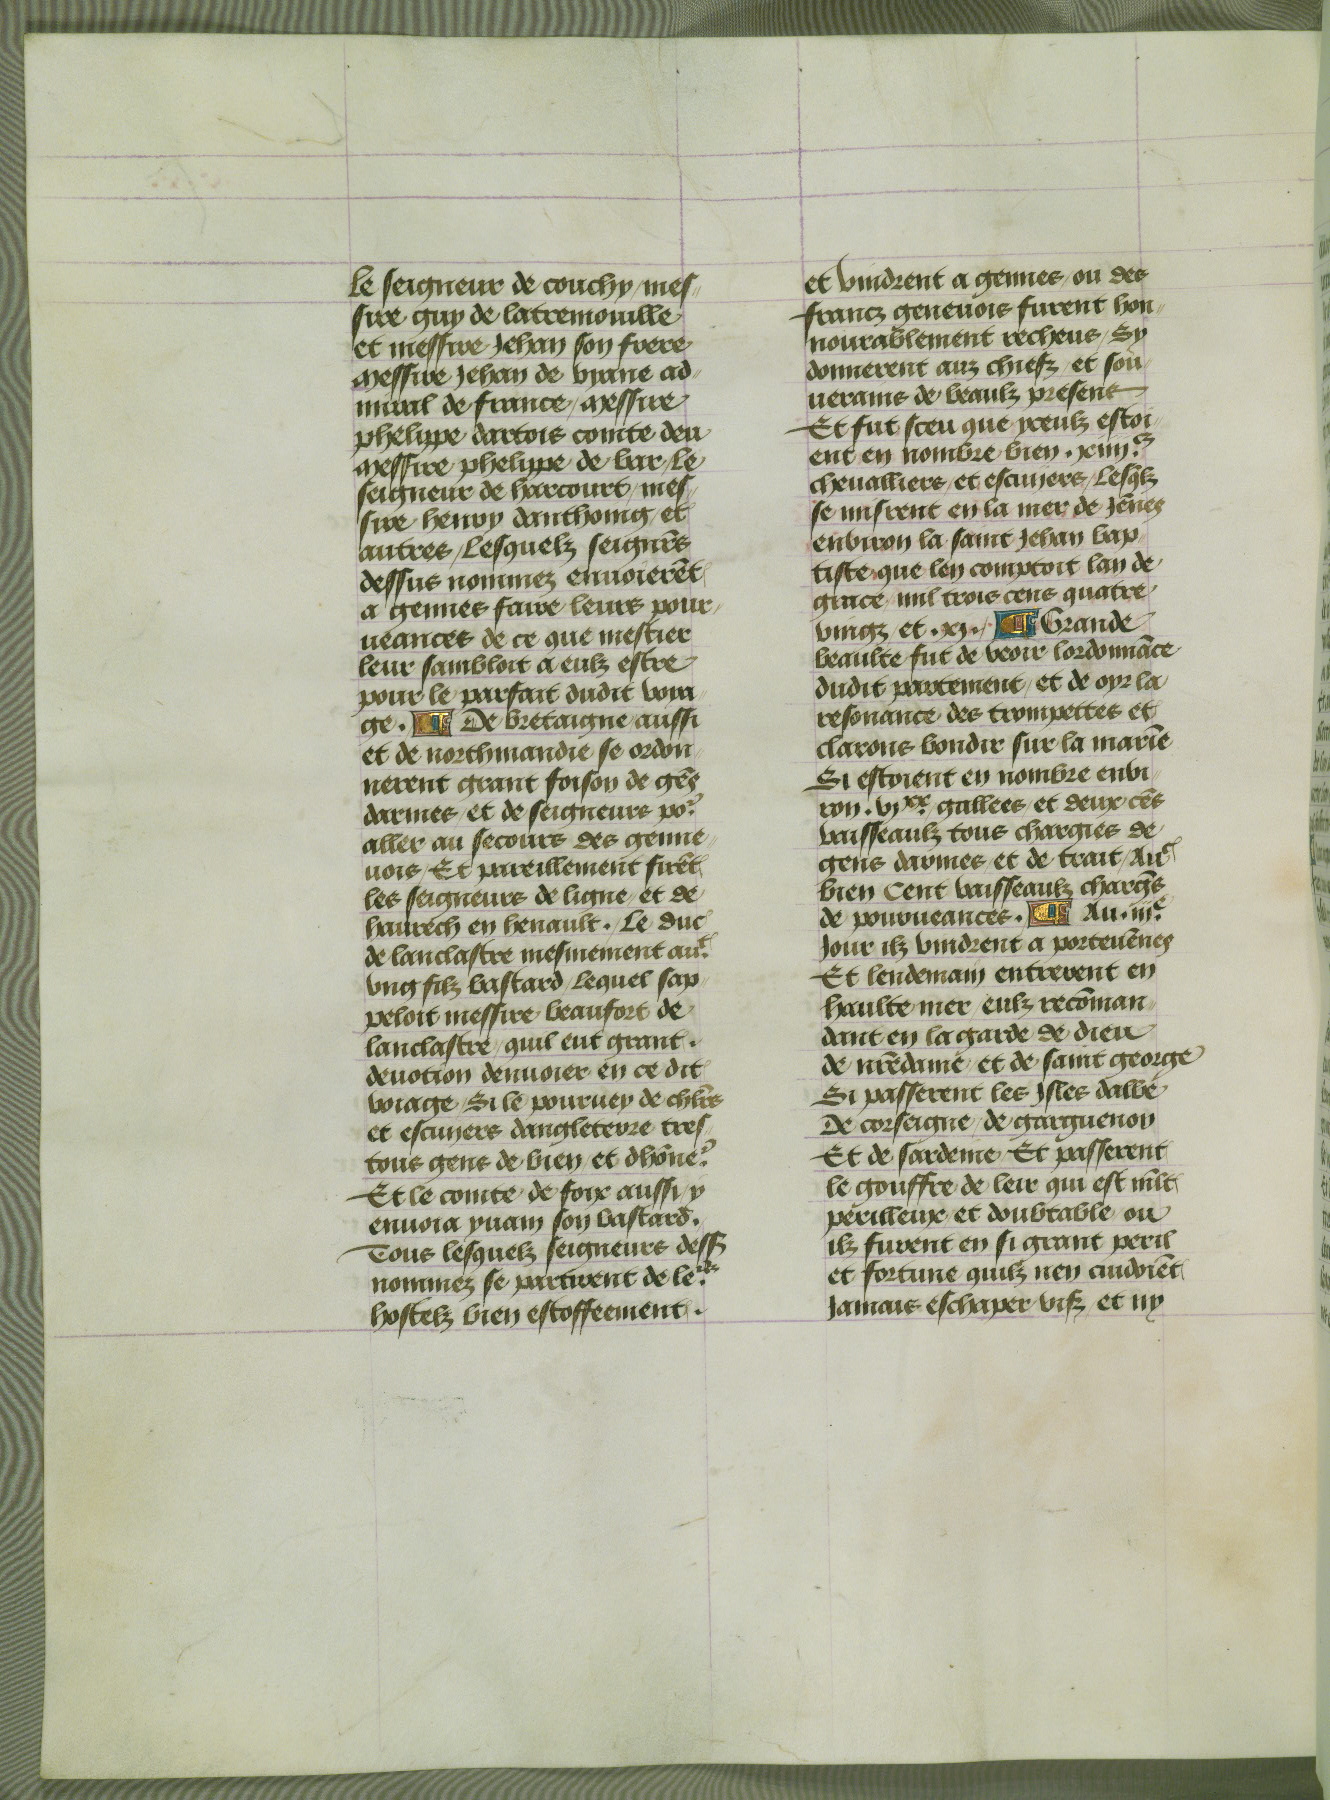 le seigneur de couchy / mes-
sire guy de latremouille
et messire Jehan son frere
Messire Jehan de vyane ad-
miral de france / Messire
phelippe dartois comte deu
Messire phelippe de bar / Le
seigneur de harcourt / mes-
sire henry danthoing / et
autres / Lesquelz seignr̄s
dessus nommez enuoierēt
a gennes faire leurs pour-
ueances de ce que mestier
leur sambloit a eulz estre
pour le parfait dudit voia-
ge . ¶ De bretaigne / aussi
et de northmandie se ordon-
nerent grant foison de gēs
darmes / et de seigneurs po᷑
aller au secours des genne-
uois / Et pareillement firēt
les seigneurs de ligne / et de
haurech en henault . Le duc
de lanclastre mesmement auͨ
vng filz bastard / Lequel sap-
peloit messire beaufort de
lanclastre / quil eut grant .
deuotion denuoier en ce dit
voiage / Si le pouruey de chlr̄s
et escuiers dangleterre tres-
tous gens de bien / et dhōne᷑
Et le comte de foix aussi / y
enuoia yuain son bastard .
Tous lesquelz seigneurs dessz
nommez se partirent de le᷑s
hostelz bien estoffeement .
et vindrent a gennes / ou des
francz geneuois furent hon-
nourablement recheus / Sy
donnerent auz chiefz / et sou-
uerains de beaulz presens
Et fut sceu que yceulz estoi-
ent en nombre bien . xiiii.ͨ
cheualliers / et escuiers / Lesqlz
se misrent en la mer de Jēnes
enbiron la saint Jehan bap-
tiste que len comptoit lan de
grace mil trois cens quatre
vingz et . xj . / ¶ Grande
beaulte fut de veoir lordonnāce
dudit partement / et de oyr la
resonance des trompettes et
clarons bondir sur la marīe
Si estoient en nombre enbi-
ron . vjˣˣ. gallees / et deux cēs
vaisseaulz tous chargies de
gens darmes / et de trait / Auͨ
bien Cent vaisseaulz chargēs
de pourueances . ¶ Au . iiiͤ.
Jour ilz vindrent a porteuēnes
Et lendemain entrerent en
haulte mer / eulz recōman-
dant en la garde de dieu
de nrēdame / et de saint george
Si passerent les Jsles dalbe
De corseigne / de garguenon
Et de sardeine / Et passerent
le gouffre de leur qui est mlt
perilleux / et doubtable / ou
ilz furent en si grant peril
et fortune quilz nen cuidoiēt
Jamais eschaper vifz / et ny